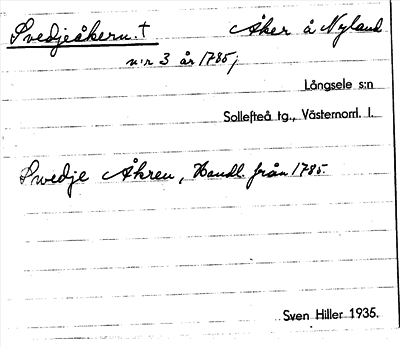 Svedjeåkern. † Åker å Nyland
n:r 3 år 1785;
Långsele s:n
Sollefteå tg., Västernorrl. l.
Swedje Åkren, Handl. från 1785.
Sven Hiller 1935.